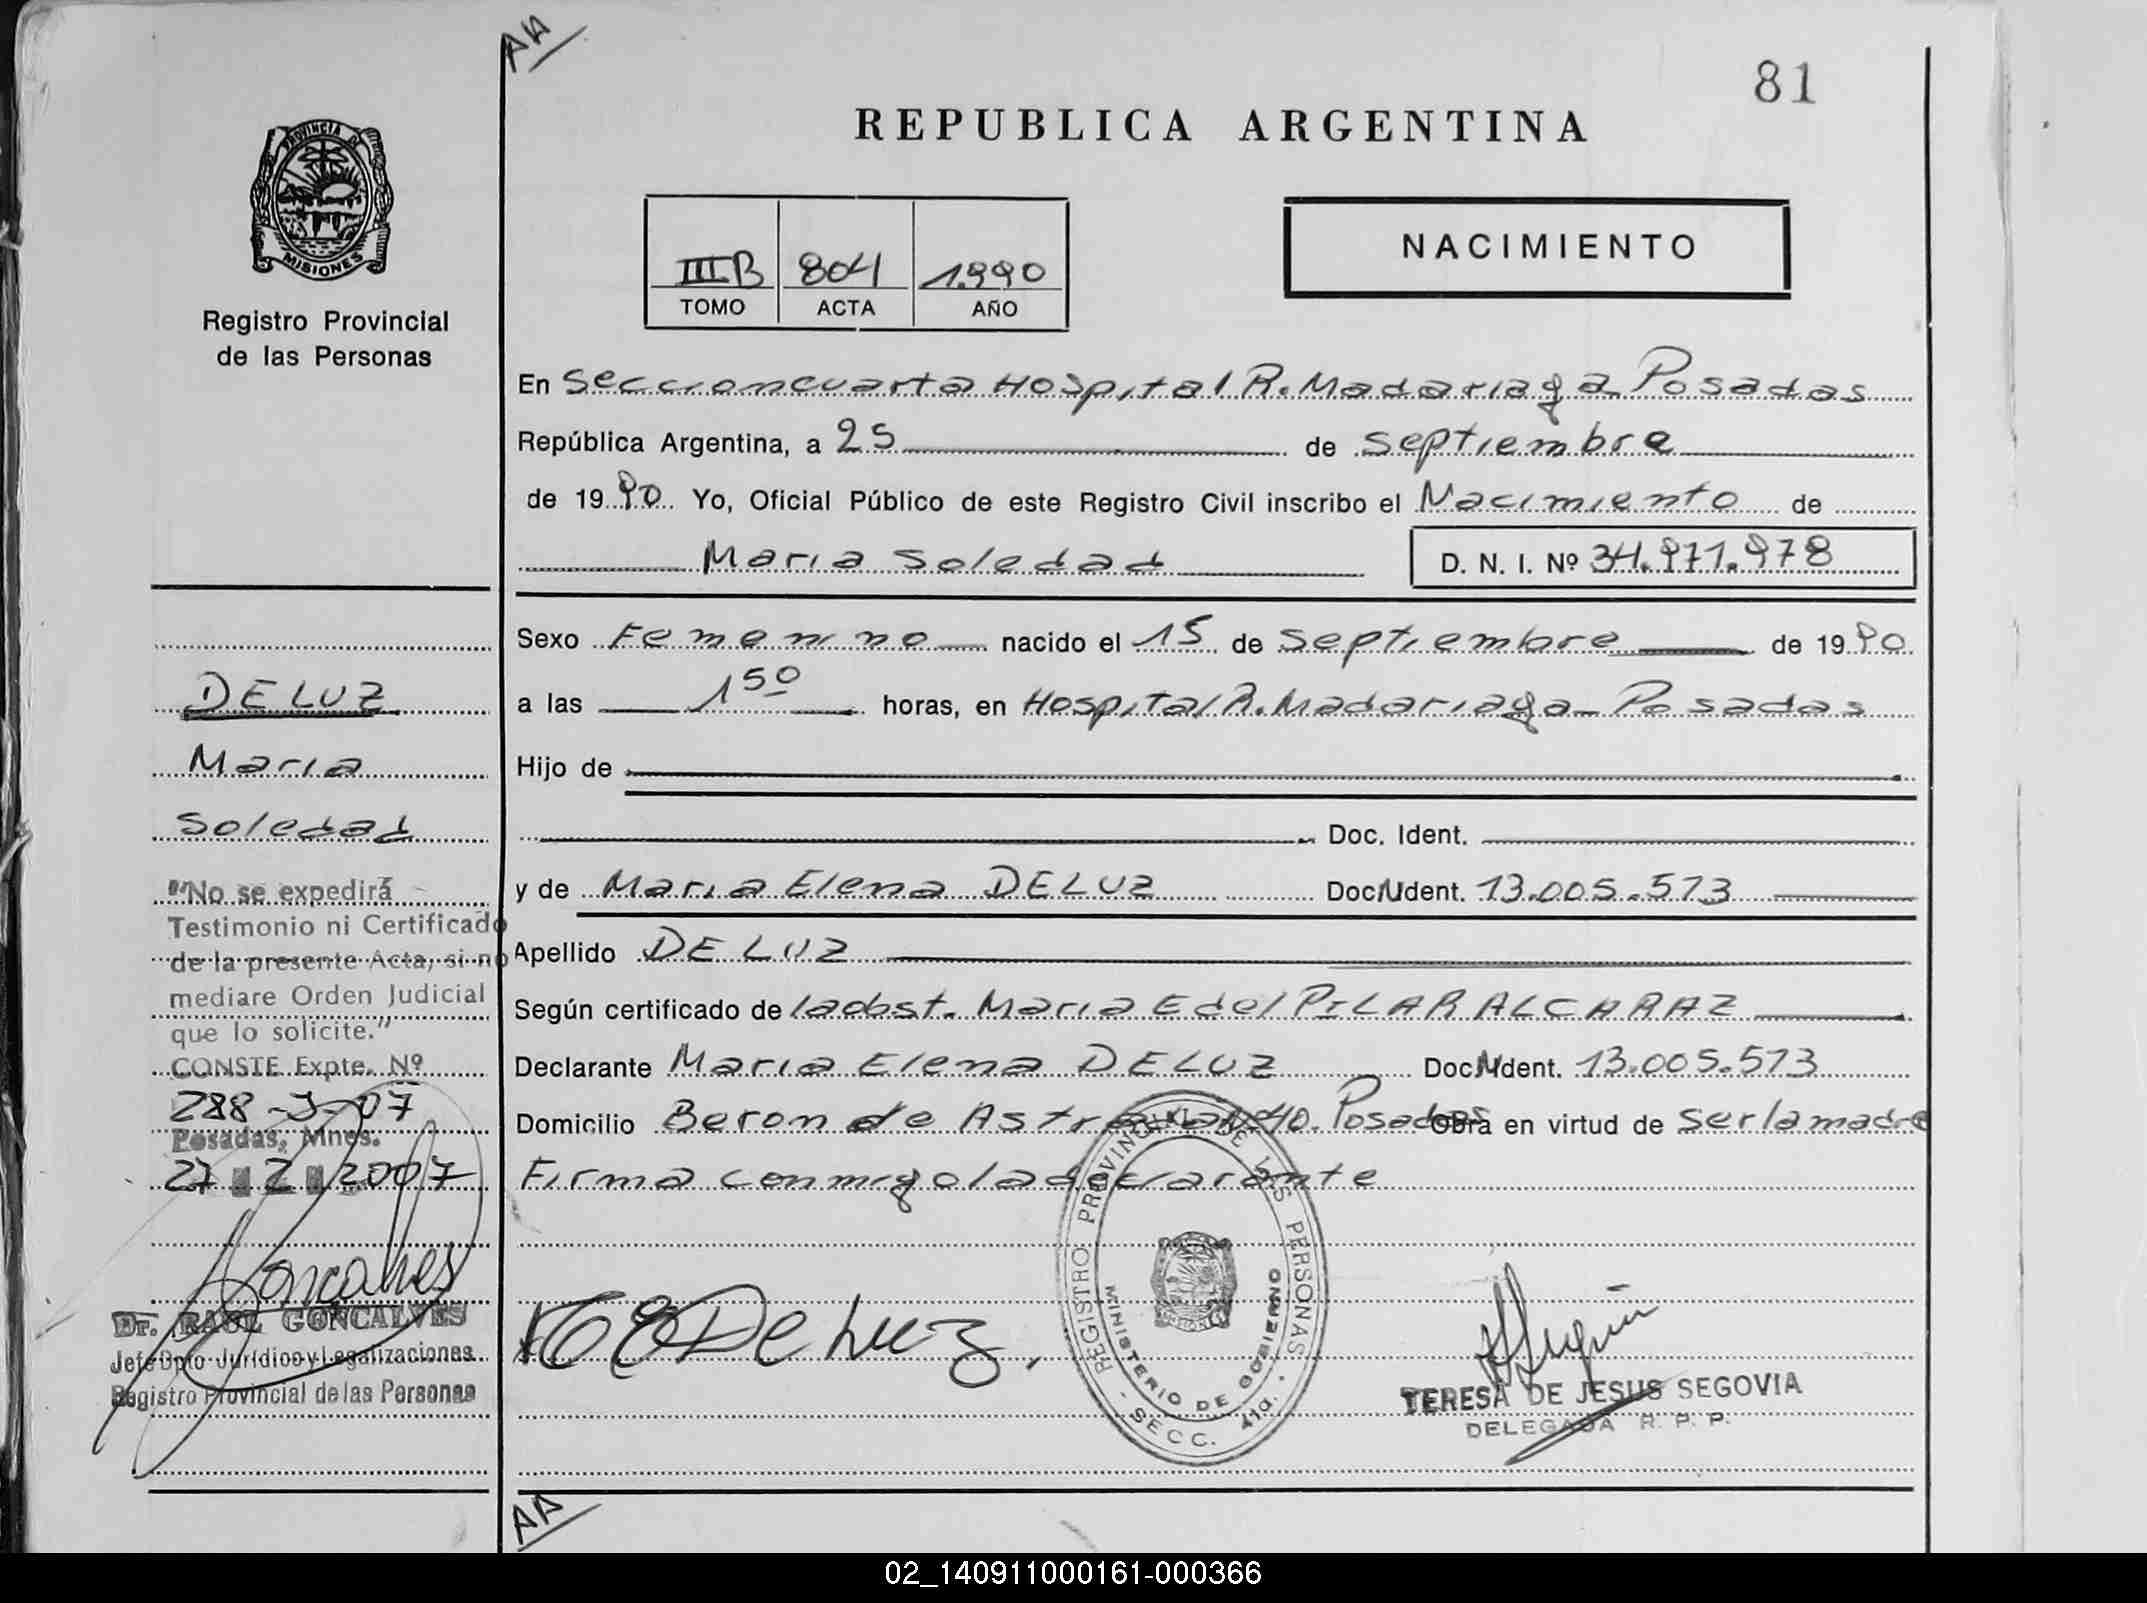 AA
81
REPUBLICA ARGENTINA
PROVINCIA DE
MISIONES
Registro Provincial
de las Personas
III B 804 1.990
TOMO ACTA AÑO
NACIMIENTO
En Seccion cuarta Hospital R. Madariaga Posadas
República Argentina, a 25 de septiembre
de 1990 Yo, Oficial Público de este Registro Civil inscribo el Nacimiento de
Maria Soledad D. N. I. Nº 34.971.978
Sexo Femenino nacido el 15 de septiembre de 1990
a las 1 50 horas, en Hospital R. Madariaga - Posadas
Hijo de
Doc. Ident.
y de Maria Elena DELUZ Doc. Ident. 13.005.573
Apellido DE LUZ
Según certificado de la obst. Maria E del PILAR ALCARAZ
Declarante Maria Elena DELUZ Doc. Ident. 13.005.573
Domicilio Beron de Astrada Posadas Obra en virtud de ser la madre
Firma conmigo la declarante
DELUZ
Maria
Soledad
"No se expedirá
Testimonio ni Certificado
de la presente Acta, si no
mediare Orden Judicial
que lo solicite."
CONSTE Expte. Nº
288-J-07
Posadas, Mnes.
27 2 2007
Goncalves
Dr. RAUL GONCALVES
Jefe Dpto Jurídico y Legalizaciones
Registro Provincial de las Personas
De Luz
REGISTRO PROVINCIAL DE LAS PERSONAS
MINISTERIO DE GOBIERNO
- SECC. 4ta. -
TERESA DE JESUS SEGOVIA
DELEGADA R. P. P.
AA
02_140911000161-000366